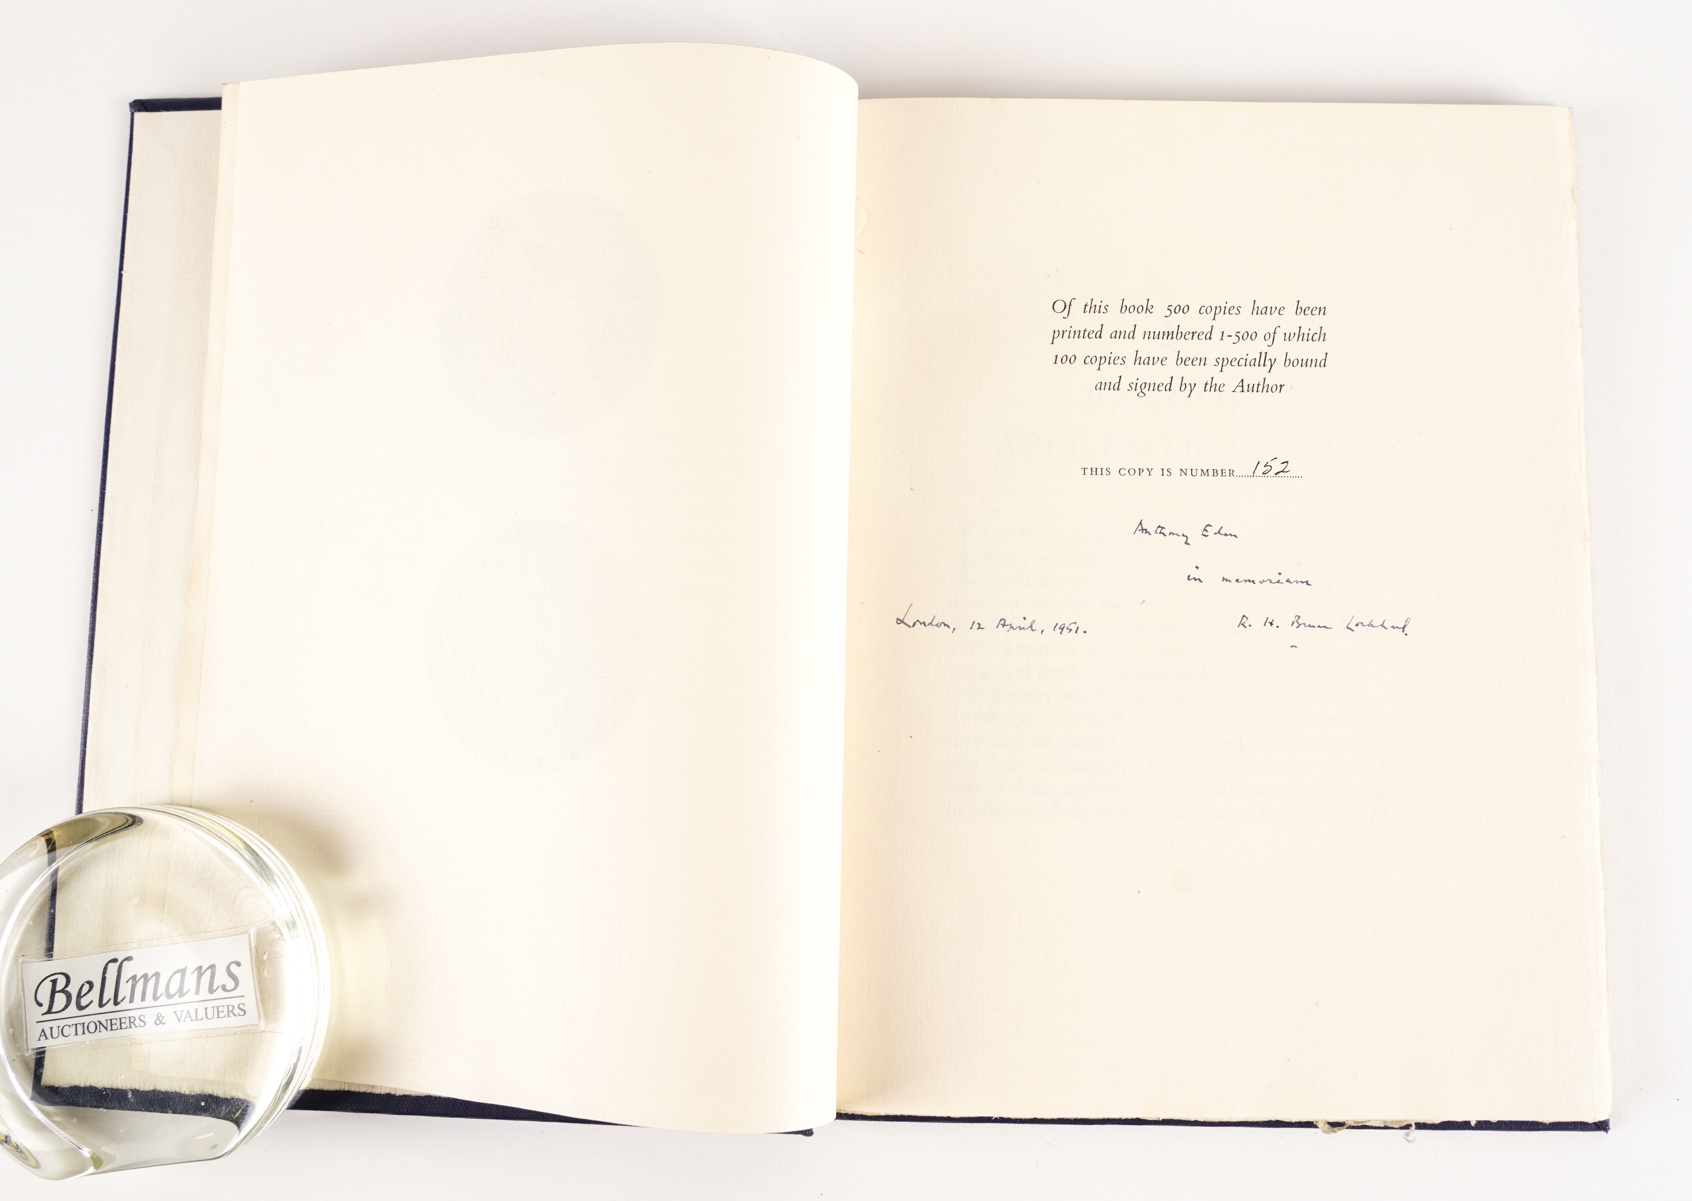 Of this book 500 copies have been
printed and numbered 1-500 of which
100 copies have been specially bound
and signed by the Author
THIS COPY IS NUMBER 152
Anthony Eden
in memoriam
London, 12 April, 1951.
R. H. Bruce Lockhart.
Bellmans
AUCTIONEERS & VALUERS